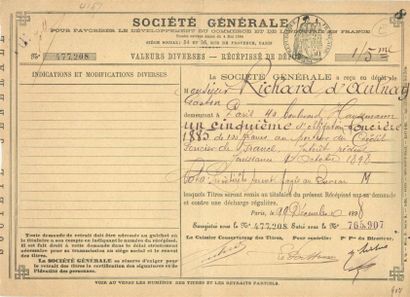 SOCIÉTÉ GÉNÉRALE
POUR FAVORISER LE DÉVELOPPEMENT DU COMMERCE ET DE L'INDUSTRIE EN FRANCE
SIÈGE SOCIAL: 54 et 56, RUE DE PROVENCE, PARIS
VALEURS DIVERSES — RÉCÉPISSÉ DE DÉPÔT
1/5 me
No 477,208
INDICATIONS ET MODIFICATIONS DIVERSES
La SOCIÉTÉ GÉNÉRALE a reçu en dépôt de
Monsieur Richard d'Aulnay
Gaston
demeurant à Paris 40 boulevard Haussmann
un cinquième d'obligation foncière
1885 de francs au porteur du Crédit
Foncier de France
Jouissance 1er Octobre 1898
M
lesquels Titres seront remis au titulaire du présent Récépissé
et contre une décharge régulière.
Paris, le 10 Décembre 1898
Enregistré sous le No 477,208 sous le No 765,907
Le Caissier Conservateur des Titres, Pour contrôle: P. le Directeur,
Toute demande de retrait doit être adressée au guichet où
le titulaire a son compte en indiquant le numéro du récépissé.
Il est fait droit à cette demande dans le délai minimum
nécessaire pour sa transmission au siège social et le retour
des titres.
La SOCIÉTÉ GÉNÉRALE se réserve d'exiger pour
le retrait des titres la certification des signatures et de
l'identité des personnes.
VOIR AU VERSO LES NUMÉROS DES TITRES ET LES RETRAITS PARTIELS.